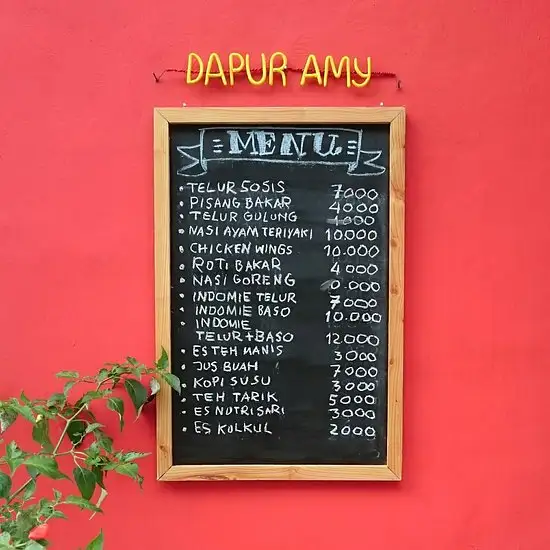 DAPUR AMY
MENU
• TELUR SOSIS 7000
• PISANG BAKAR 4000
• TELUR GULUNG 1000
• NASI AYAM TERIYAKI 10.000
• CHICKEN WINGS 10.000
• ROTI BAKAR 4000
• NASI GORENG
• INDOMIE TELUR 7000
• INDOMIE BASO 10.000
• INDOMIE
TELUR+BASO 12000
• ES TEH MANIS 3000
• JUS BUAH 7000
• KOPI SUSU 3000
• TEH TARIK 5000
• ES NUTRISARI 3000
• ES KULKUL 2000